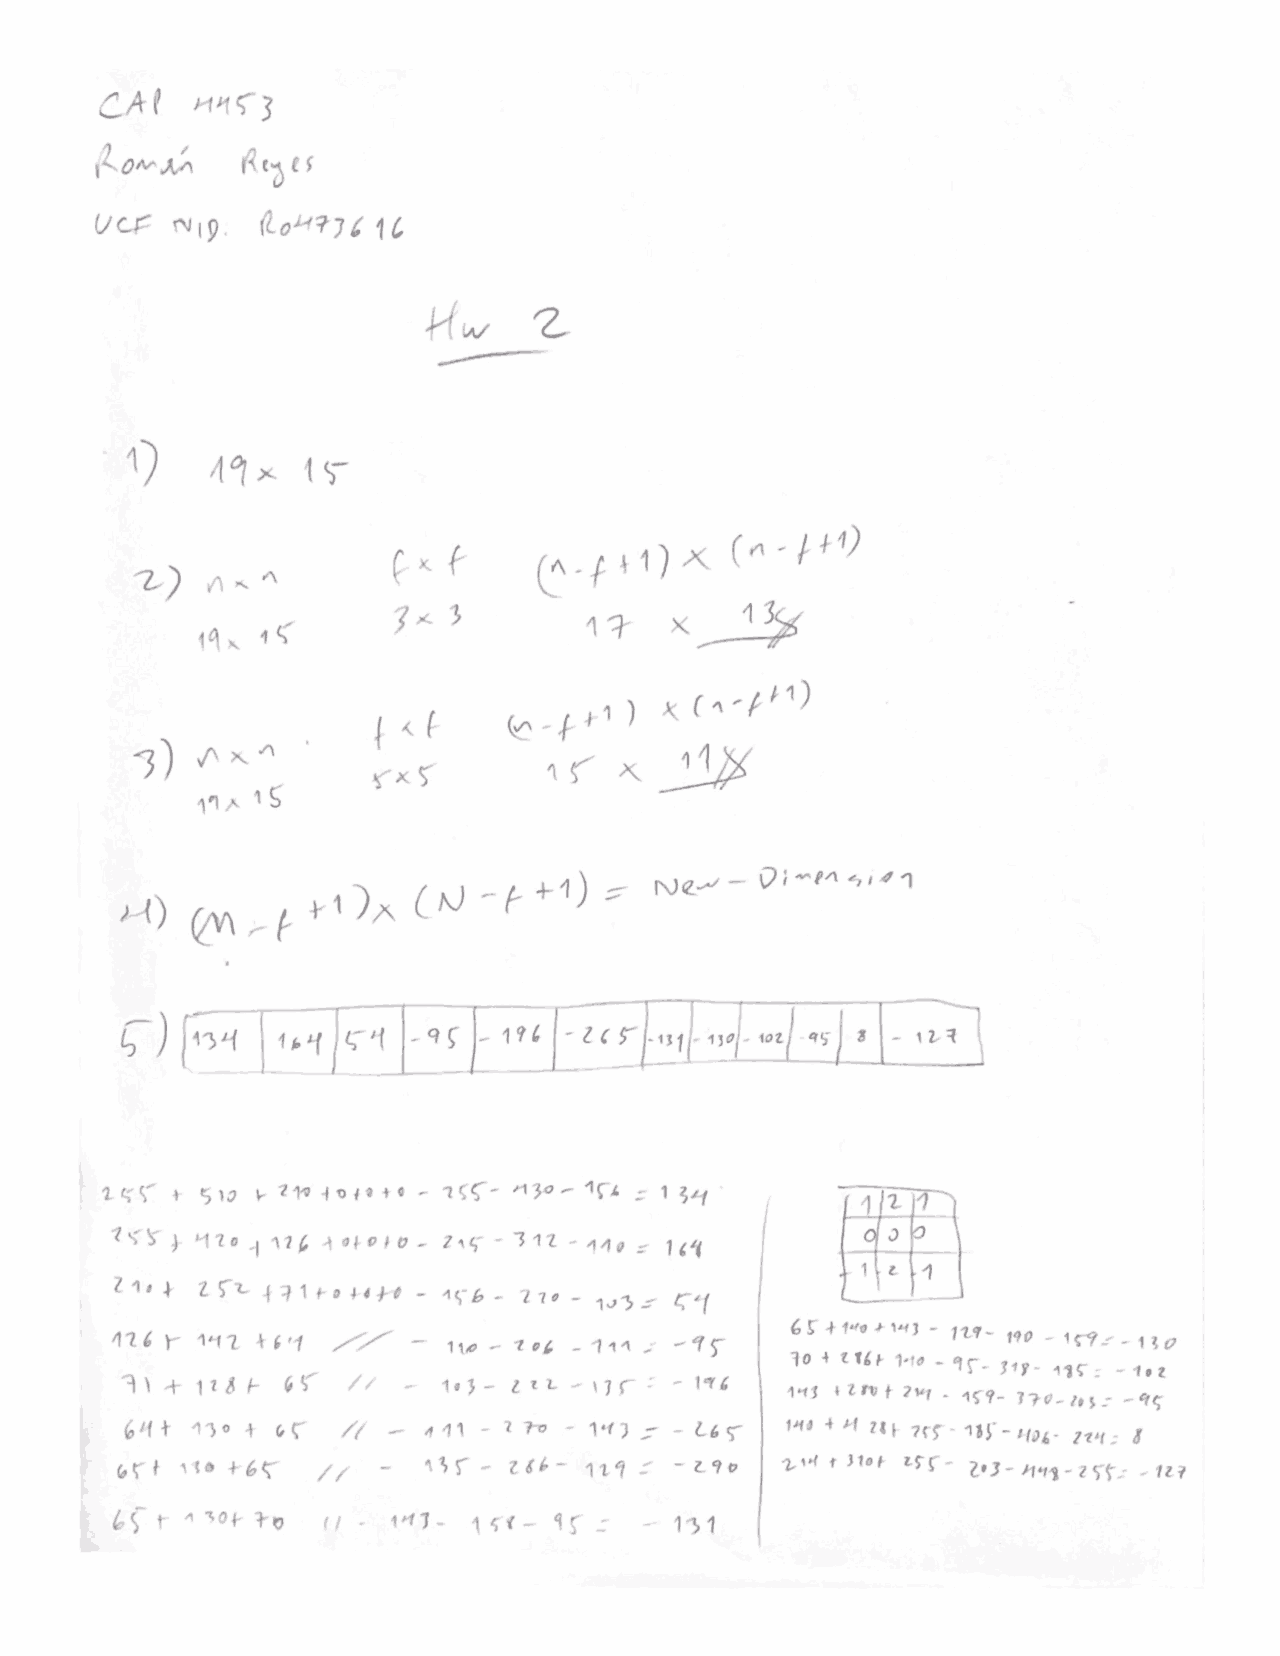 CAP 4453
Román Reyes
UCF NID: Ro473616
Hw 2
1) 19 x 15
2) n x n f x f (n-f+1) x (n-f+1)
19 x 15 3 x 3 17 x 13
3) n x n f x f (n-f+1) x (n-f+1)
19 x 15 5 x 5 15 x 11
4) (M-f+1) x (N-f+1) = New-Dimension
5) 134 164 54 -95 -196 -265 -131 -130 -102 -95 8 -127
255 + 510 + 210 +0+0+0 - 255 - 430 - 156 = 134
255 + 420 + 126 +0+0+0 - 215 - 312 - 110 = 164
210 + 252 +71+0+0+0 - 156 - 220 - 103 = 54
126 + 142 +64 // - 110 - 206 - 111 = -95
71 + 128 + 65 // - 103 - 222 - 135 = -196
64 + 130 + 65 // - 111 - 270 - 143 = -265
65 + 130 +65 // - 135 - 286 - 129 = -290
65 + 130 + 70 // - 143 - 158 - 95 = -131
1 2 1
0 0 0
-1 -2 -1
65 + 140 + 143 - 129 - 190 - 159 = -130
70 + 286 + 140 - 95 - 318 - 185 = -102
143 + 280 + 214 - 159 - 370 - 203 = -95
140 + 428 + 255 - 185 - 406 - 224 = 8
214 + 310 + 255 - 203 - 448 - 255 = -127